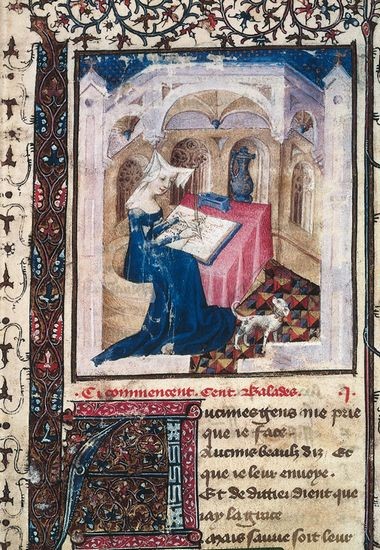 Cy commencent Cent Balades. .j.
Aucunes gens me prie
que ie face
Aucuns beaulz diz Et
que ie leur envoye.
Et de dittier dient que
jay la grace
Mais sauve soit leur